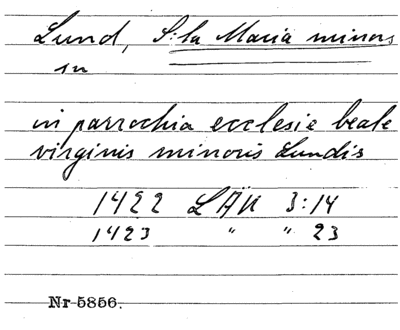 Lund, S:ta Maria minors
sn
in parrochia ecclesie beate
virginis minoris Lundis
1422 LÄU 3:14
1423 " " 23
Nr 5856.